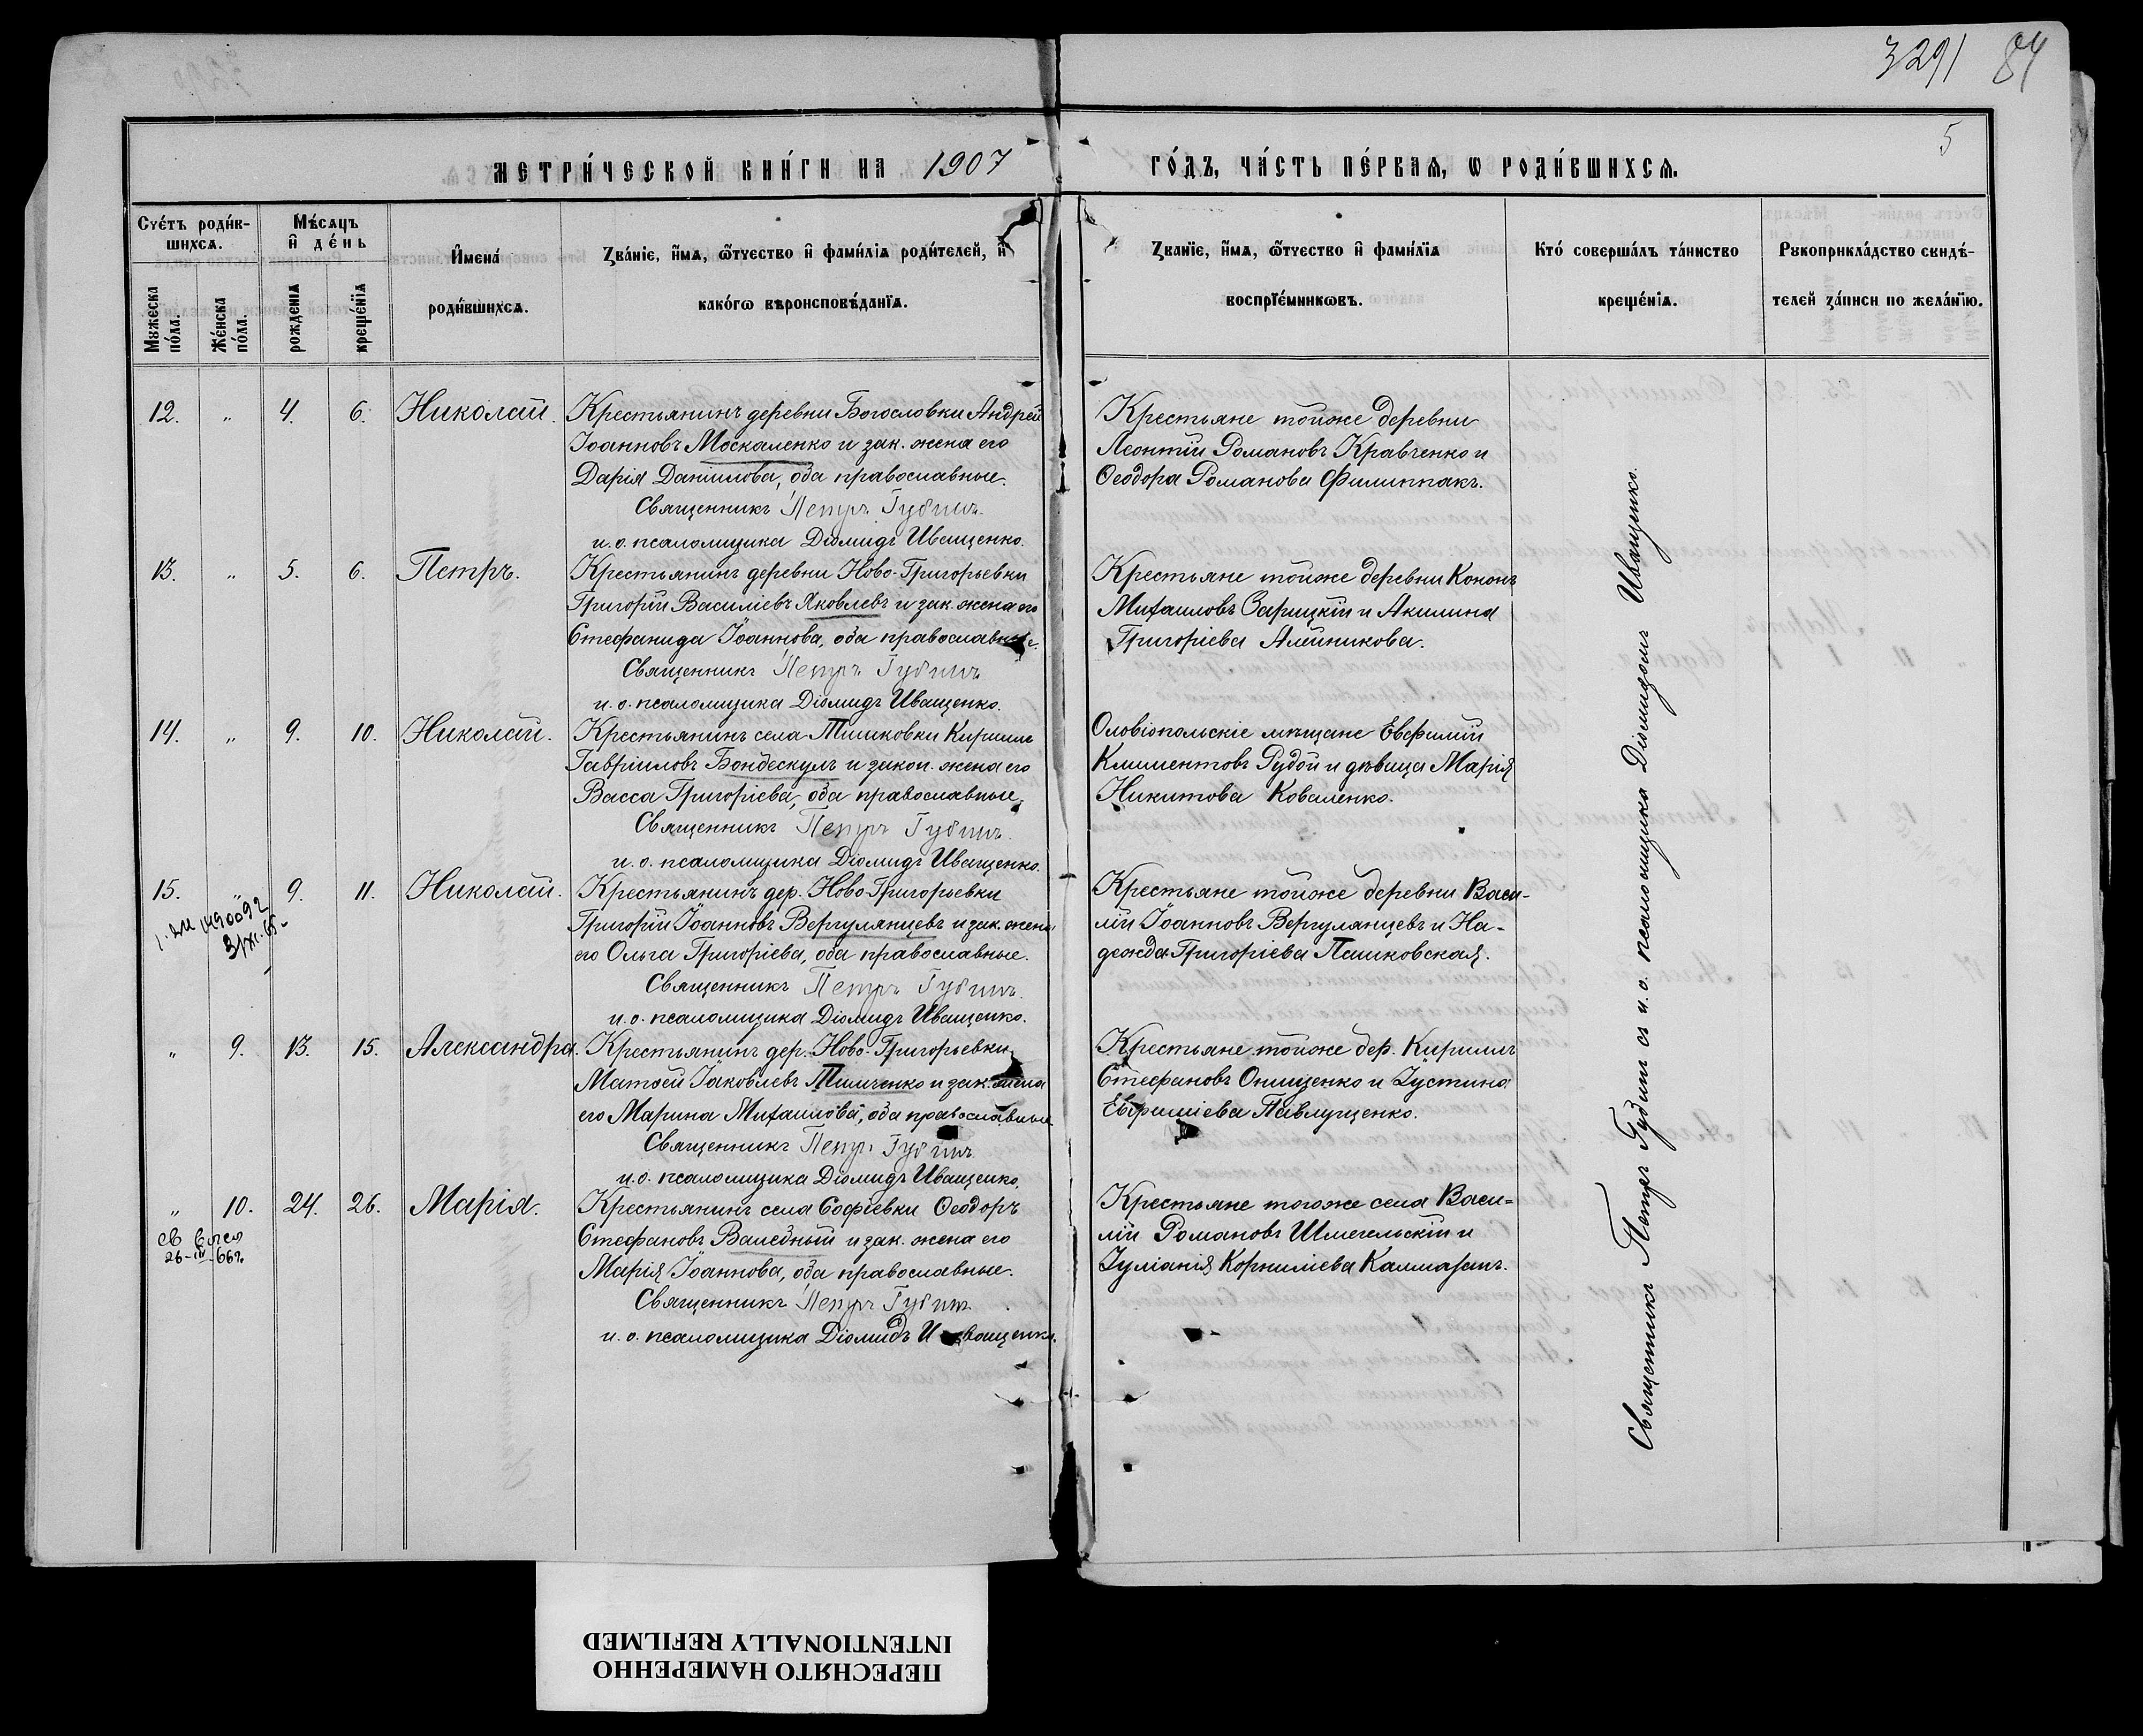 3291 84
5
МЕТРИ́ЧЕСКОЙ КНИ́ГИ НА 1907 ГО́ДЪ, ЧА́СТЬ ПЕ́РВАѦ, Ѡ РОДИ́ВШИХСѦ.
Счéтъ роди́вшихсѧ.
Мꙋжеска по́ла.
Же́нска по́ла.
Мѣ́сѧцъ и҆ де́нь
рожденїѧ
креще́нїѧ
И҆мена́ роди́вшихсѧ.
Зва́нїе, и҆́мѧ, ѻ҆́тчество и҆ фами́лїѧ роди́телей, и҆
како́гѡ вѣроисповѣ́данїѧ.
Зва́нїе, и҆́мѧ, ѻ҆́тчество и҆ фами́лїѧ
воспрїе́мникѡвъ.
Кто́ соверша́лъ та́инство
креще́нїѧ.
Рꙋкоприкла́дство свидѣ́-
телей за́писи по жела́нїю.
12. " 4. 6. Николай.
Крестьянинъ деревни Богословки Андрей
Іоанновъ Москаленко и зак. жена его
Дарія Даніилова, оба православные.
Священникъ Петръ Губинъ.
и. о. псаломщика Діомидъ Иващенко.
Крестьяне тойже деревни
Леонтій Романовъ Кравченко и
Ѳеодора Романова Филиппакъ.
13. " 5. 6. Петръ.
Крестьянинъ деревни Ново-Григорьевки
Григорій Василіевъ Яковлевъ и зак. жена его
Стефанида Іоаннова, оба православные.
Священникъ Петръ Губинъ
и. о. псаломщика Діомидъ Иващенко.
Крестьяне тойже деревни Кононъ
Михаиловъ Зарицкій и Акилина
Григоріева Алейникова.
14. " 9. 10. Николай.
Крестьянинъ села Тишковки Кириллъ
Гавріиловъ Бондескулъ и закон. жена его
Васса Григоріева, оба православные.
Священникъ Петръ Губинъ.
и. о. псаломщика Діомидъ Иващенко.
Ольвіопольскіе мѣщане Евфимій
Климентовъ Рудой и дѣвица Марія
Никитова Коваленко.
15. " 9. 11. Николай.
Крестьянинъ дер. Ново-Григорьевки
Григорій Іоанновъ Вергулянцевъ и зак. жена
его Ольга Григоріева, оба православные.
Священникъ Петръ Губинъ.
и. о. псаломщика Діомидъ Иващенко.
Крестьяне тойже деревни Васи-
лій Іоанновъ Вергулянцевъ и На-
дежда Григоріева Пашковская.
" 9. 13. 15. Александра.
Крестьянинъ дер. Ново-Григорьевки
Матѳей Іаковлевъ Тимченко и зак. жена
его Марина Михаилова, оба православные
Священникъ Петръ Губинъ
и. о. псаломщика Діомидъ Иващенко.
Крестьяне тойже дер. Кириллъ
Стефановъ Онищенко и Іустина
Евфиміева Павлущенко.
" 10. 24. 26. Марія.
26-III-66г.
Крестьянинъ села Софіевки Ѳеодоръ
Стефановъ Валедный и зак. жена его
Марія Іоаннова, оба православные.
Священникъ Петръ Губинъ.
и. о. псаломщика Діомидъ Иващенко.
Крестьяне тогоже села Васи=
лій Романовъ Шмегельскій и
Іуліанія Корниліева Калмазанъ.
Священникъ Петръ Губинъ съ и. о. псаломщика Діомидомъ Иващенко.
ПЕРЕСНЯТО НАМЕРЕННО
INTENTIONALLY REFILMED